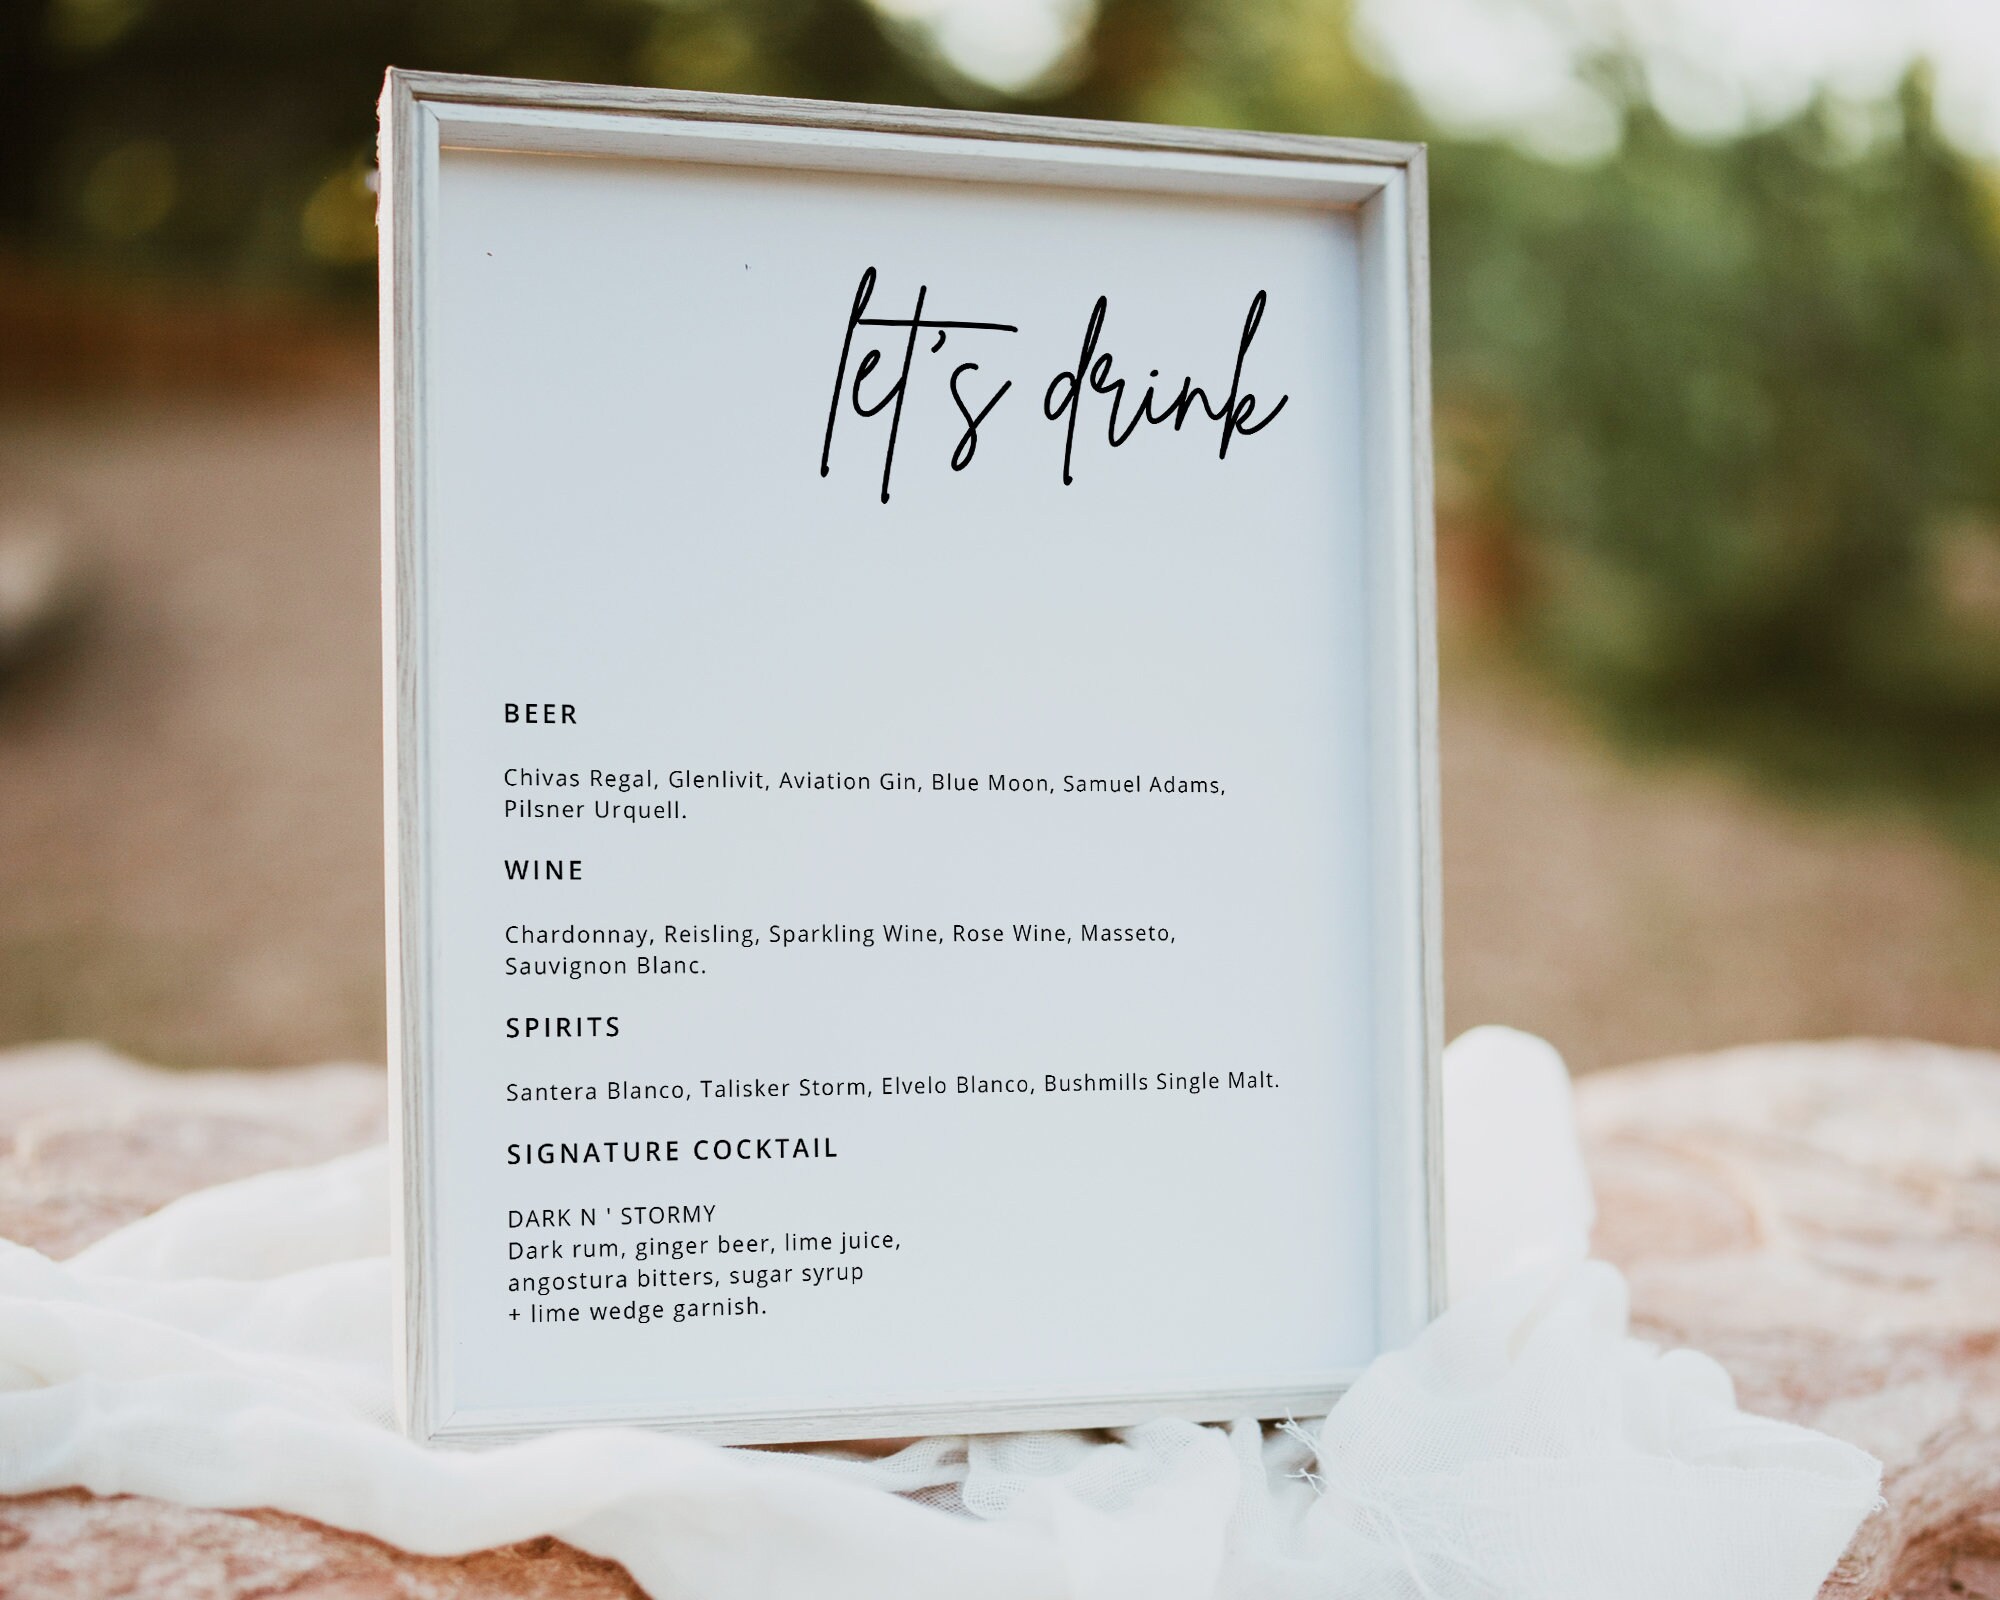 let's drink
BEER
Chivas Regal, Glenlivit, Aviation Gin, Blue Moon, Samuel Adams,
Pilsner Urquell.
WINE
Chardonnay, Reisling, Sparkling Wine, Rose Wine, Masseto,
Sauvignon Blanc.
SPIRITS
Santera Blanco, Talisker Storm, Elvelo Blanco, Bushmills Single Malt.
SIGNATURE COCKTAIL
DARK N ' STORMY
Dark rum, ginger beer, lime juice,
angostura bitters, sugar syrup
+ lime wedge garnish.